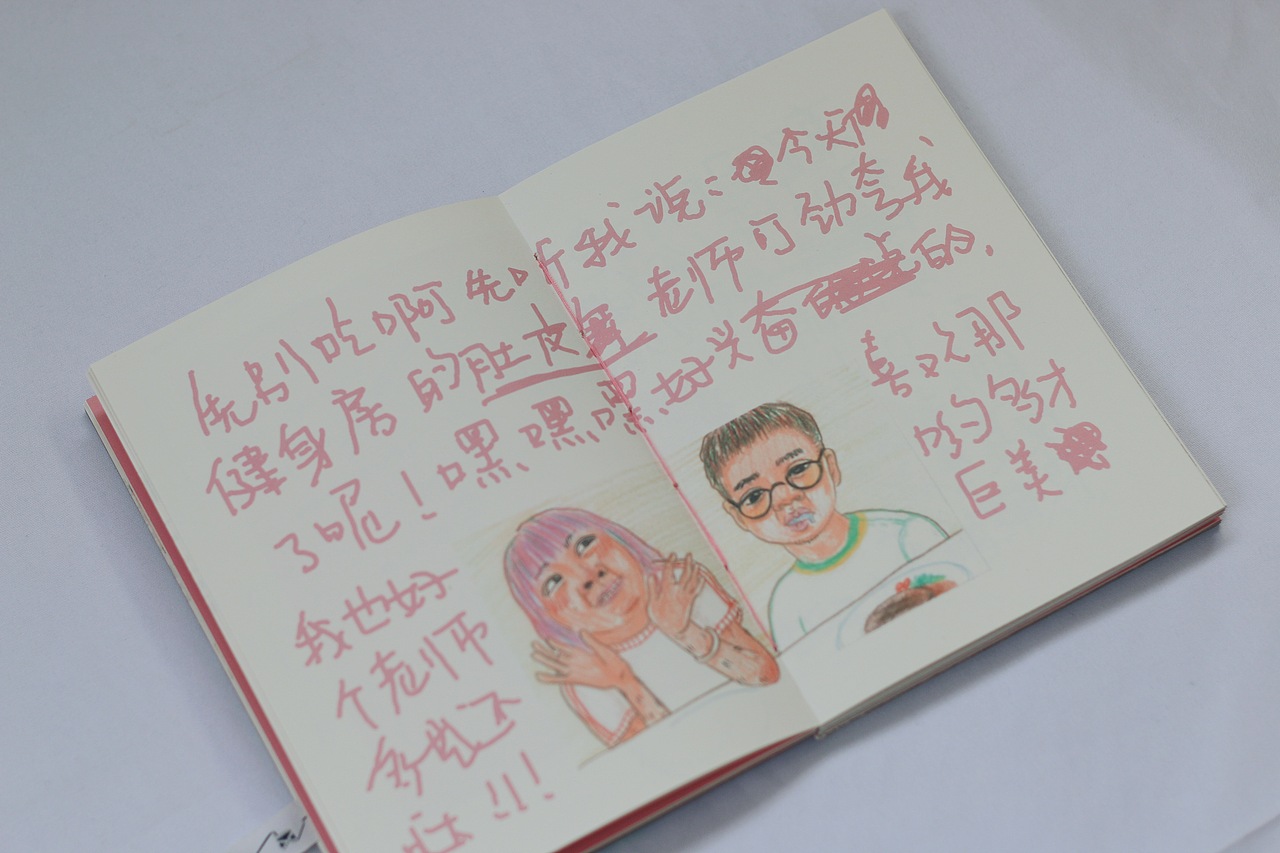 先别吃啊先听我说：今天
健身房的肚皮老师可劲夸我
了呢！嘿嘿嘿,好兴奋的.
我也好喜欢那
个老师哟多才
多艺还巨美
!!!